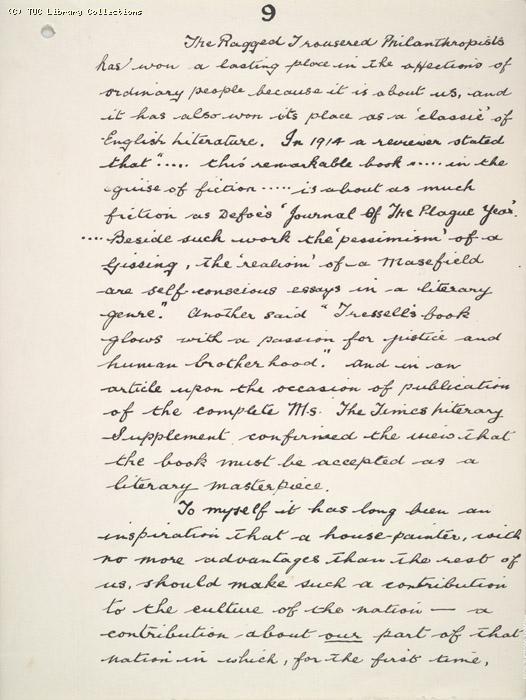 (c) TUC Library Collections
9
The Ragged Trousered Philanthropists
has won a lasting place in the affections of
ordinary people because it is about us, and
it has also won its place as a 'classic' of
English Literature. In 1914 a reviewer stated
that "..... this remarkable book ..... in the
guise of fiction ..... is about as much
fiction as Defoe's 'Journal Of The Plague Year'.
.... Beside such work the 'pessimism' of a
Gissing, the 'realism' of a Masefield
are self-conscious essays in a literary
genre." Another said "Tressell's book
glows with a passion for justice and
human brotherhood." And in an
article upon the occasion of publication
of the complete Ms. The Times Literary
Supplement confirmed the view that
the book must be accepted as a
literary masterpiece.
To myself it has long been an
inspiration that a house-painter, with
no more advantages than the rest of
us, should make such a contribution
to the culture of the nation — a
contribution about our part of that
nation in which, for the first time,